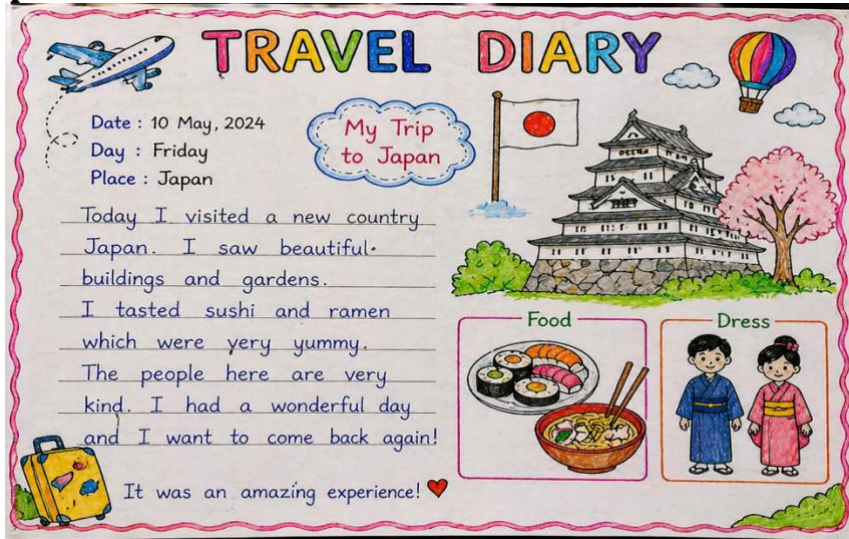 TRAVEL DIARY
Date : 10 May, 2024
Day : Friday
Place : Japan
My Trip
to Japan
Today I visited a new country
Japan. I saw beautiful
buildings and gardens.
I tasted sushi and ramen
which were very yummy.
The people here are very
kind. I had a wonderful day
and I want to come back again!
It was an amazing experience!
Food
Dress